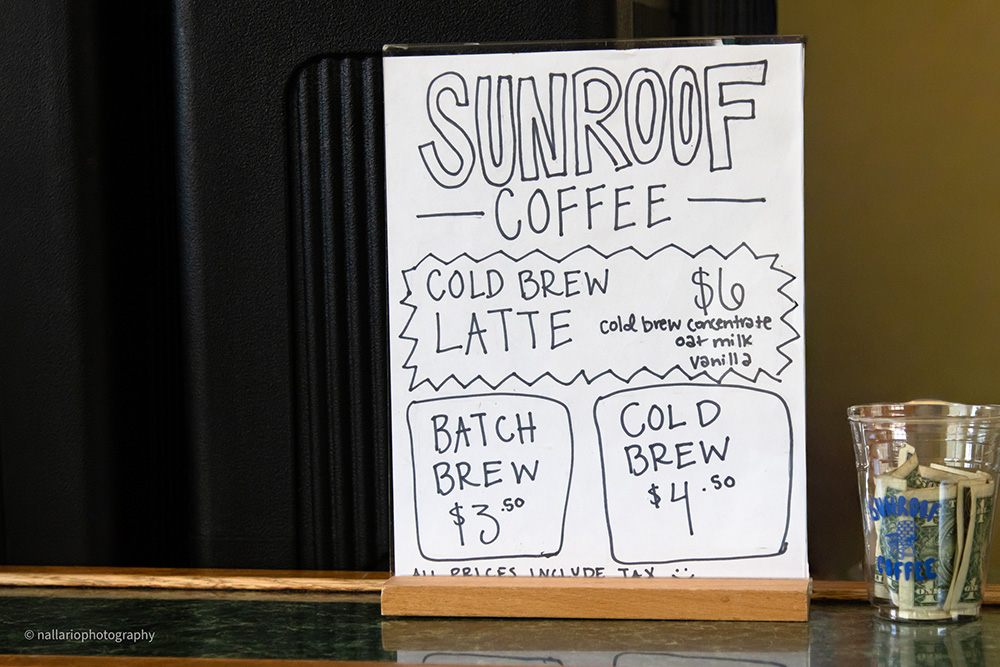 SUNROOF
COFFEE
COLD BREW
LATTE
$6
cold brew concentrate
oat milk
vanilla
BATCH
BREW
$3.50
COLD
BREW
$4.50
ALL PRICES INCLUDE TAX
SUNROOF
COFFEE
© nallariophotography